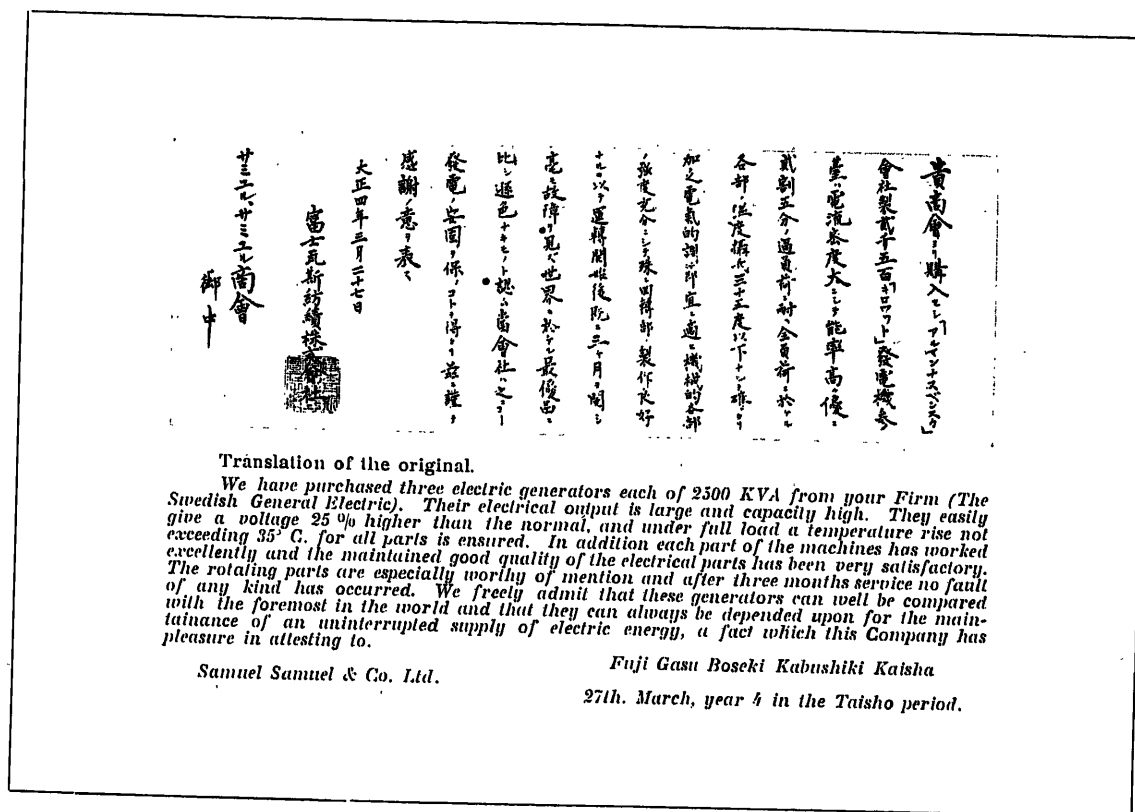 貴商會ヨリ購入セシ「アルマンナスベンスカ」
會社製貳千五百「キロワット」發電機參
臺ハ電流密度大ニシテ能率高ク優ニ
貳割五分ノ過負荷ニ耐ヘ全負荷ニ於ケル
各部ノ温度攝氏三十五度以下
加之電氣的調節宜ニ適シ機械的各部
ノ強度充分ニシテ殊ニ回轉部ノ製作良好
ナルヲ以テ運轉開始後既ニ三ヶ月ヲ閲シ
毫モ故障ヲ見ズ世界ニ於ケル最優品ニ
比シ遜色ナキモノト認ム當會社ハ之ニヨリ
發電ノ安固ヲ保ツコトヲ得タリ茲ニ謹テ
感謝ノ意ヲ表ス
大正四年三月二十七日
富士瓦斯紡績株式會社
サミユル、サミユル商會
御中
Translation of the original.
We have purchased three electric generators each of 2500 KVA from your Firm (The
Swedish General Electric). Their electrical output is large and capacity high. They easily
give a voltage 25 % higher than the normal, and under full load a temperature rise not
exceeding 35° C. for all parts is ensured. In addition each part of the machines has worked
excellently and the maintained good quality of the electrical parts has been very satisfactory.
The rotating parts are especially worthy of mention and after three months service no fault
of any kind has occurred. We freely admit that these generators can well be compared
with the foremost in the world and that they can always be depended upon for the main-
tainance of an uninterrupted supply of electric energy, a fact which this Company has
pleasure in attesting to.
Samuel Samuel & Co. Ltd.
Fuji Gasu Boseki Kabushiki Kaisha
27th. March, year 4 in the Taisho period.